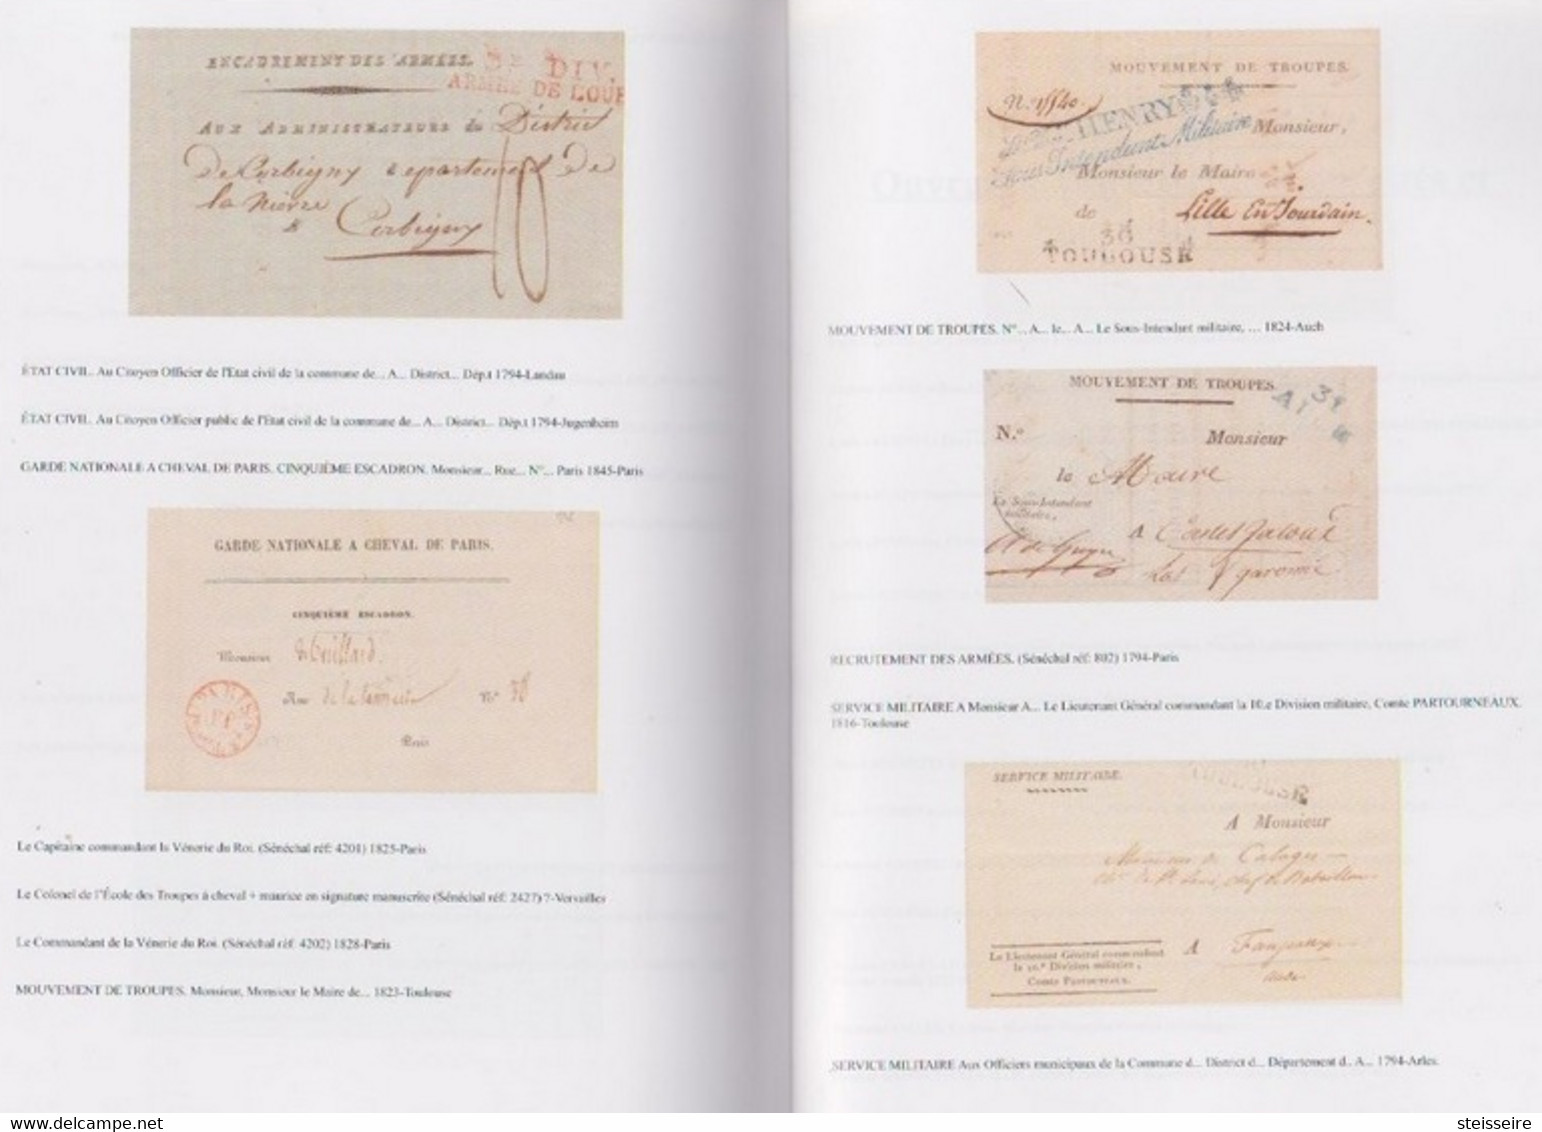 ENCADREMENT DES ARMÉES.
DIV.
ARMÉE DE L'OUE
AUX ADMINISTRATEURS du District
De Corbigny departement De
la Nievre
a Corbigny
10
ÉTAT CIVIL. Au Citoyen Officier de l'Etat civil de la commune de... A... District... Dép.t 1794-Landau
ÉTAT CIVIL. Au Citoyen Officier public de l'Etat civil de la commune de... A... District... Dép.t 1794-Jugenheim
GARDE NATIONALE A CHEVAL DE PARIS. CINQUIÈME ESCADRON. Monsieur... Rue... N°... Paris 1845-Paris
GARDE NATIONALE A CHEVAL DE PARIS.
CINQUIÈME ESCADRON.
Monsieur
Rue de la N° 38
PARIS
Paris
Le Capitaine commandant la Vénerie du Roi. (Sénéchal réf: 4201) 1825-Paris
Le Colonel de l'École des Troupes à cheval + maurice en signature manuscrite (Sénéchal réf: 2427) ?-Versailles
Le Commandant de la Vénerie du Roi. (Sénéchal réf: 4202) 1828-Paris
MOUVEMENT DE TROUPES. Monsieur, Monsieur le Maire de... 1823-Toulouse
MOUVEMENT DE TROUPES.
N.° 15540.
HENRY
Sous Intendant Militaire
Monsieur,
Monsieur le Maire
de Lille En Jourdain.
30
TOULOUSE
MOUVEMENT DE TROUPES. N°... A... le... A... Le Sous-Intendant militaire, ... 1824-Auch
MOUVEMENT DE TROUPES.
N.° Monsieur
le Maire
Le Sous-Intendant
militaire,
A Casteljaloux
Lot garonne
RECRUTEMENT DES ARMÉES. (Sénéchal réf: 802) 1794-Paris
SERVICE MILITAIRE A Monsieur A... Le Lieutenant Général commandant la 10.e Division militaire, Comte PARTOURNEAUX.
1816-Toulouse
SERVICE MILITAIRE.
TOULOUSE
A Monsieur
Monsieur de Calages
ch.er de St Louis, chef de Bataillon
A Fanjeaux
Aude
Le Lieutenant Général commandant
la 10.e Division militaire,
Comte PARTOUNEAUX.
SERVICE MILITAIRE Aux Officiers municipaux de la Commune d... District d... Département d.. A... 1794-Arles.
delcampe.net
steisseire